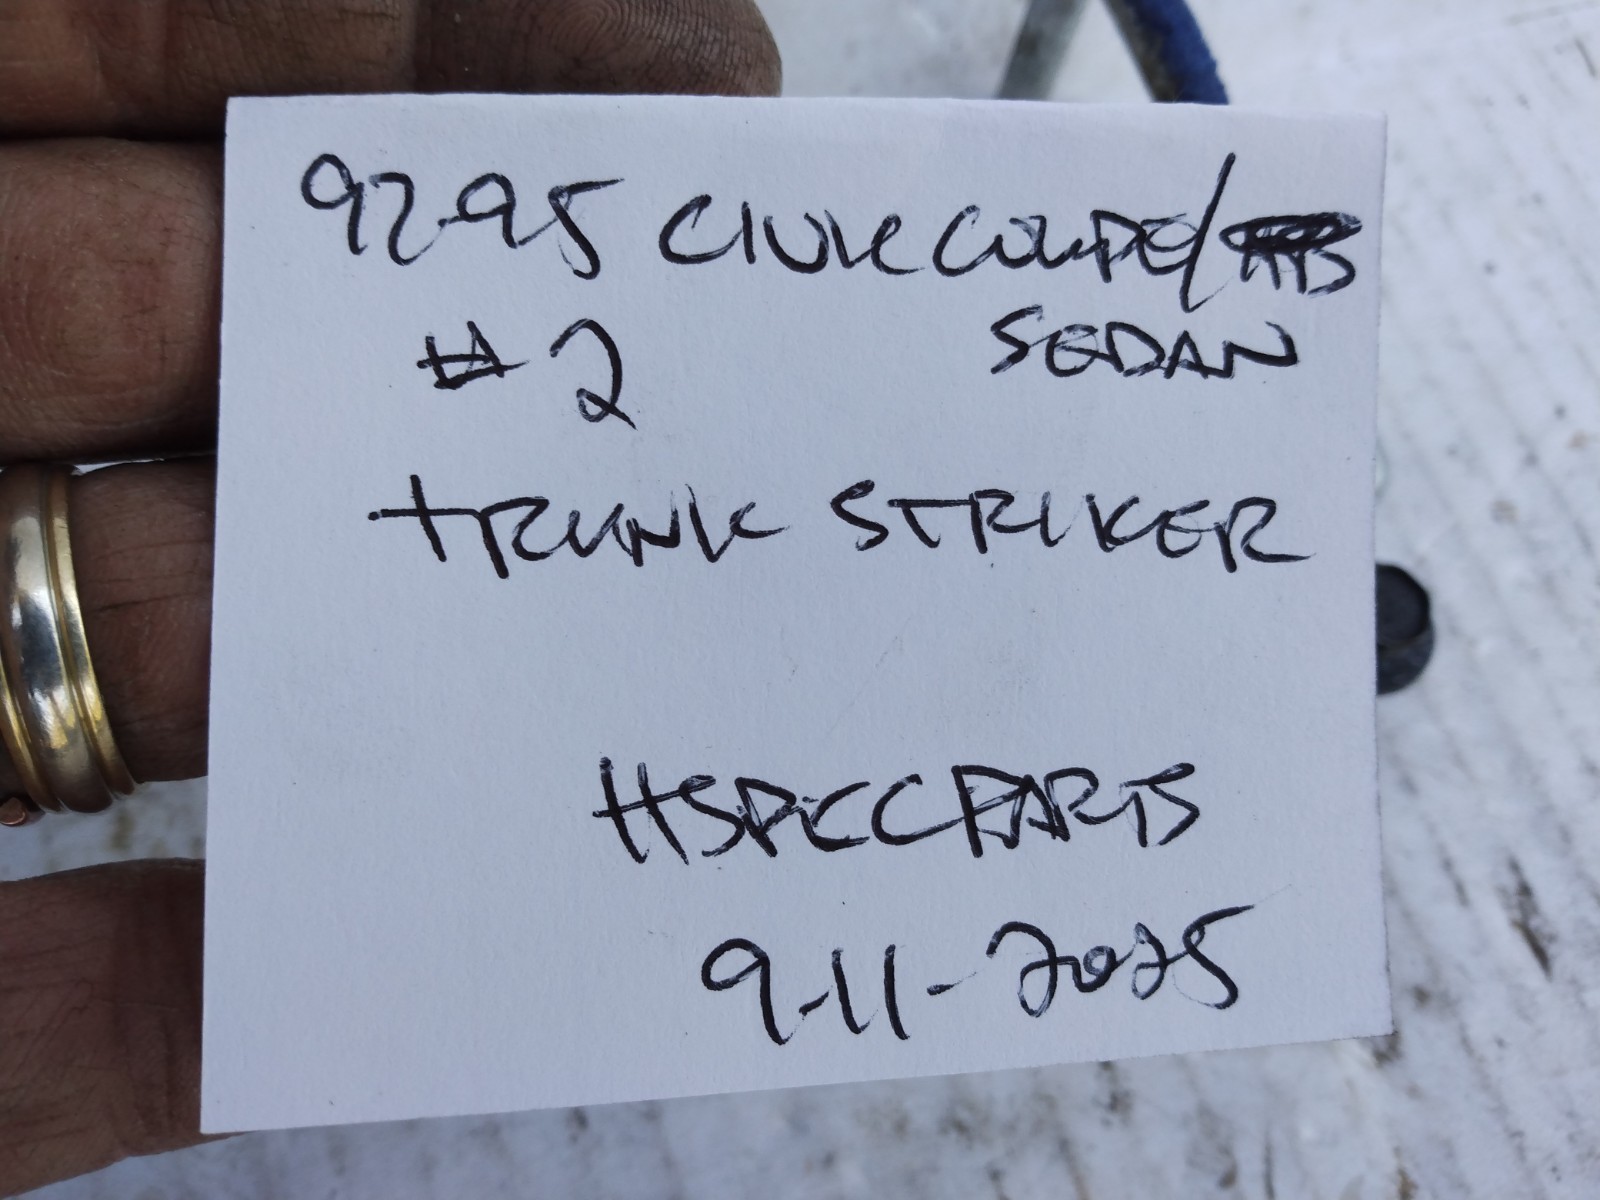 92-95 CIVIC COUPE/
#2 SEDAN
TRUNK STRIKER
HSPEC PARTS
9-11-2025